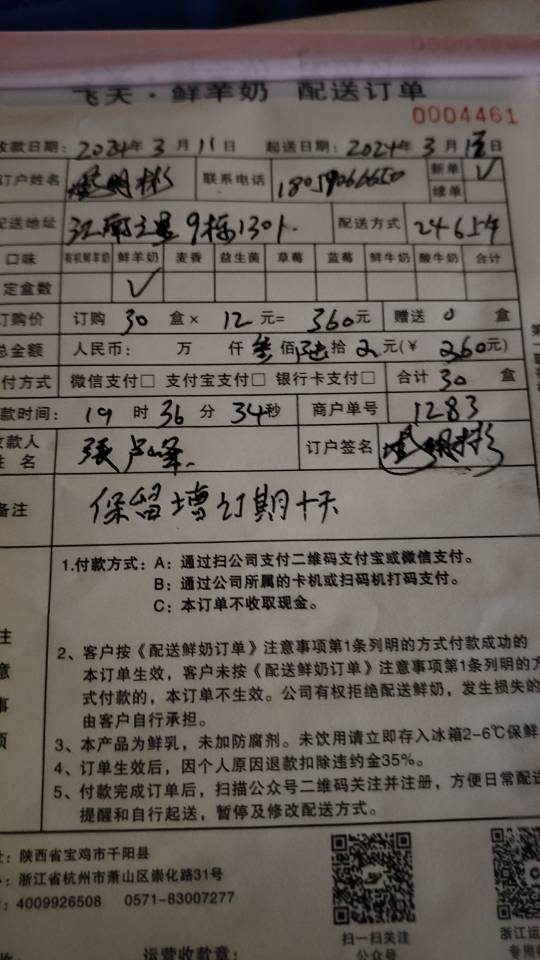 飞天·鲜羊奶 配送订单
0004461
收款日期: 2024年3月11日 起送日期: 2024年3月 日
订户姓名 明彬 联系电话 新单 √
续单
配送地址 9栋1301. 配送方式 24654
口味 有机鲜羊奶 鲜羊奶 麦香 益生菌 草莓 蓝莓 鲜牛奶 酸牛奶 合计
定盒数 √
订购价 订购 30 盒× 12 元= 360元 赠送 0 盒
总金额 人民币: 万 仟 叁佰陆拾 元(¥ 360元)
付方式 微信支付□ 支付宝支付□ 银行卡支付□ 合计 30 盒
款时间: 19 时 36 分 34秒 商户单号 1283
收款人姓名 张 峰 订户签名 明彬
备注 保留增订期十天
1.付款方式: A: 通过扫公司支付二维码支付宝或微信支付。
B: 通过公司所属的卡机或扫码机打码支付。
C: 本订单不收取现金。
注意事项
2、客户按《配送鲜奶订单》注意事项第1条列明的方式付款成功的
本订单生效，客户未按《配送鲜奶订单》注意事项第1条列明的方
式付款的，本订单不生效。公司有权拒绝配送鲜奶，发生损失的
由客户自行承担。
3、本产品为鲜乳，未加防腐剂。未饮用请立即存入冰箱2-6℃保鲜
4、订单生效后，因个人原因退款扣除违约金35%。
5、付款完成订单后，扫描公众号二维码关注并注册，方便日常配送
提醒和自行起送，暂停及修改配送方式。
: 陕西省宝鸡市千阳县
: 浙江省杭州市萧山区崇化路31号
: 4009926508 0571-83007277
扫一扫关注
公众号
浙江运
专用收
运营收款章: